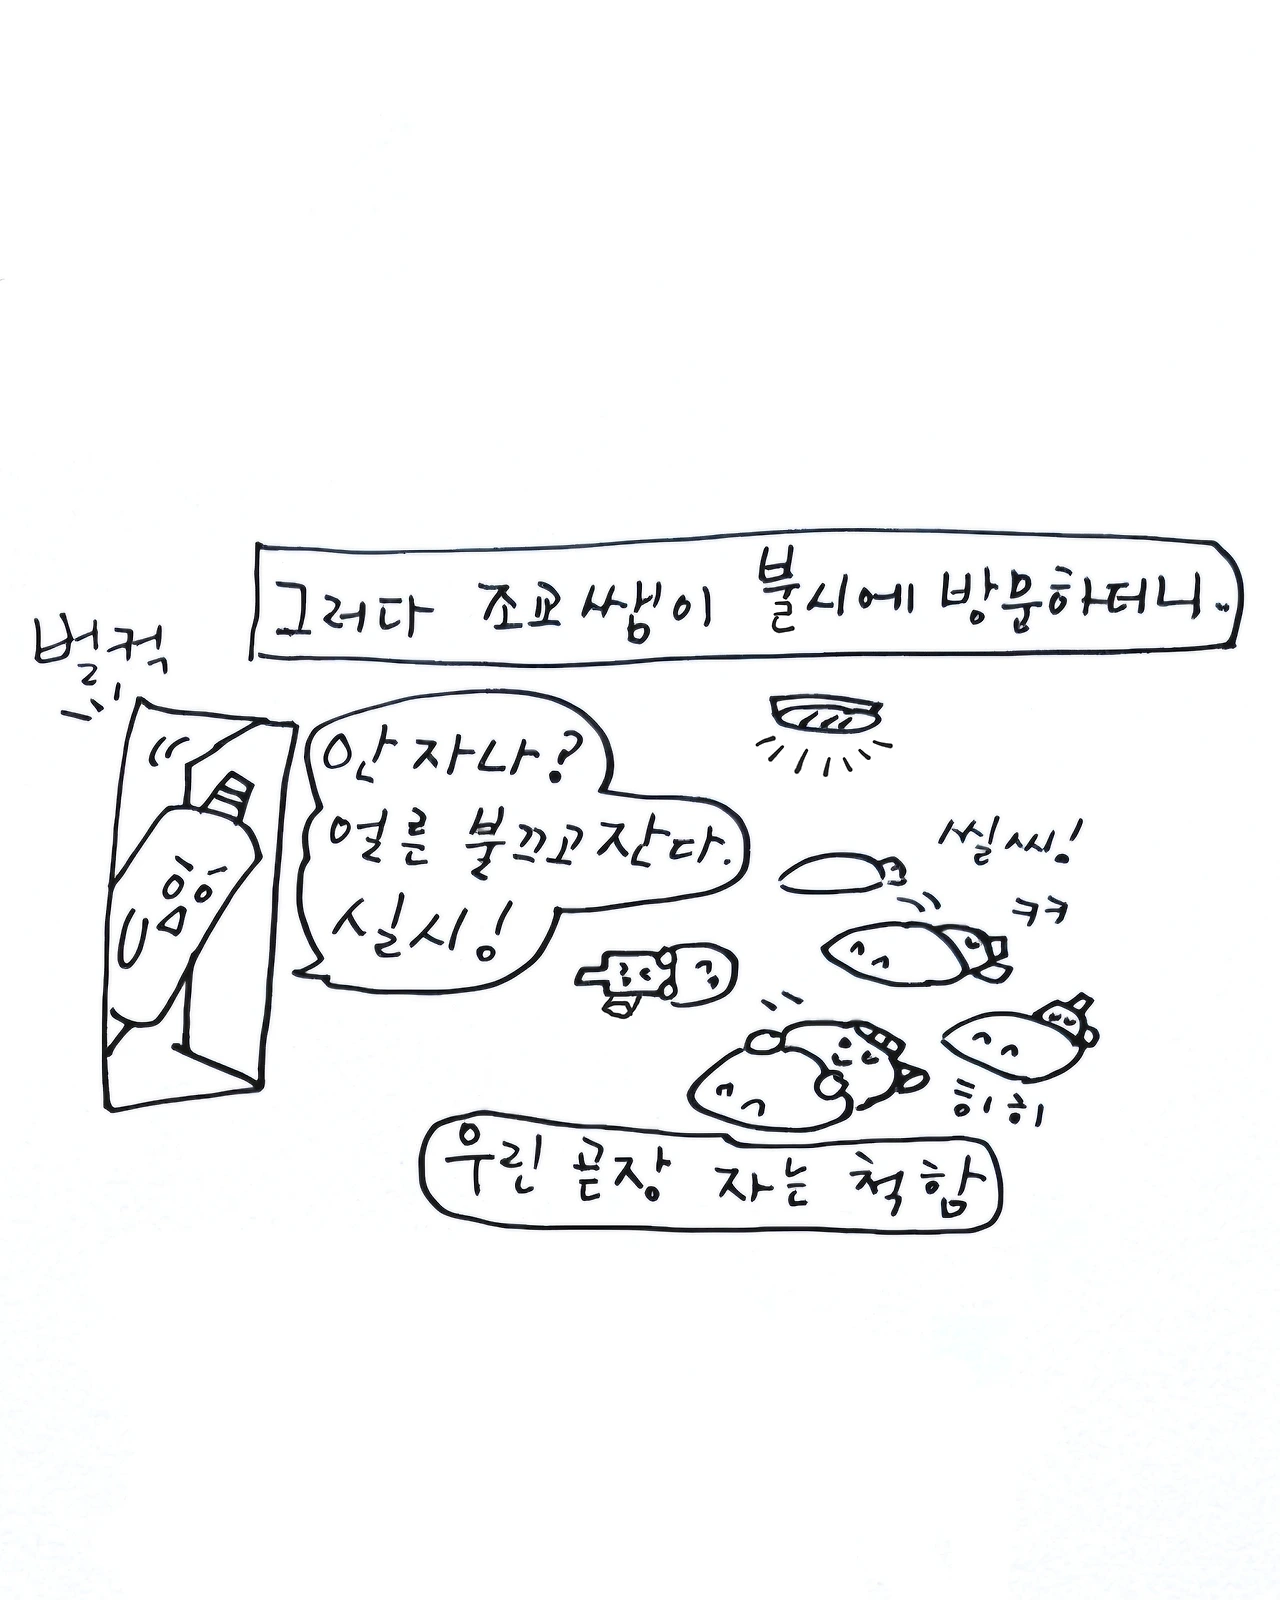 그러다 조교쌤이 불시에 방문하더니..
벌컥
안자나?
얼른 불끄고 잔다.
실시!
씰씨!
ㅋㅋ
히히
우린 곧장 자는 척 함